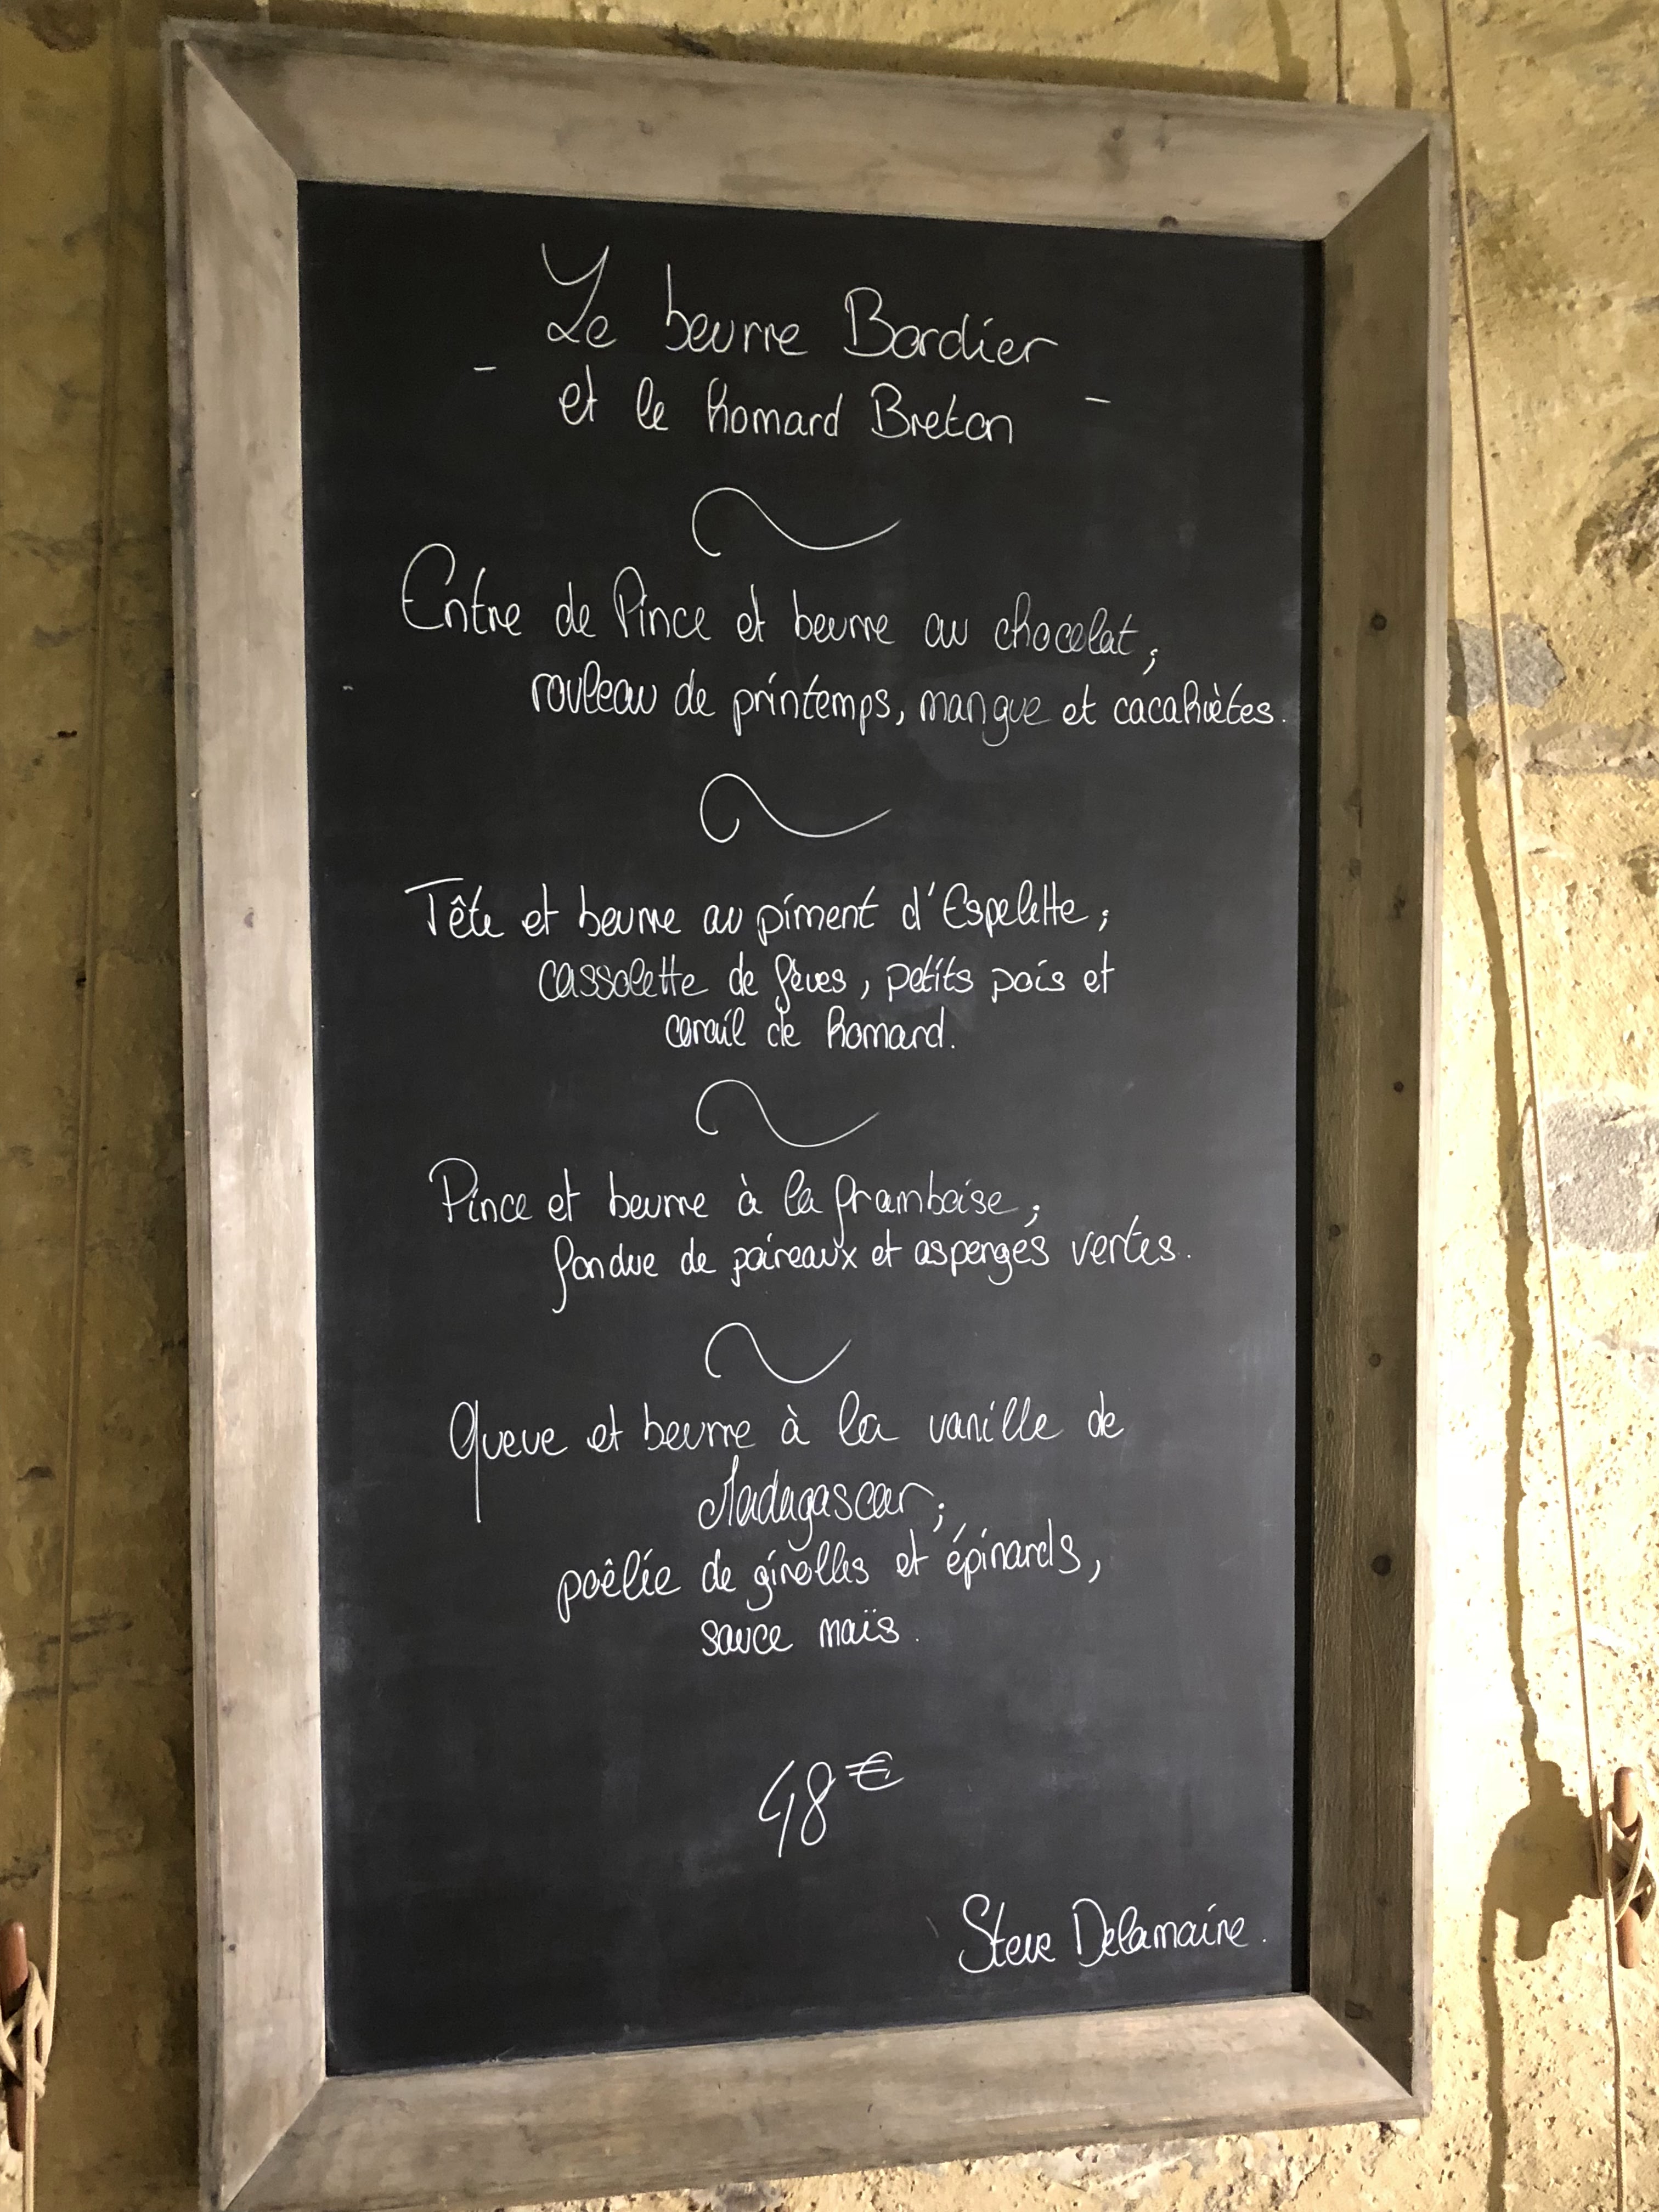 Le beurre Bordier
- et le homard Breton -
Entre de Pince et beurre au chocolat ;
rouleau de printemps, mangue et cacahuètes.
Tête et beurre au piment d'Espelette ;
cassolette de fèves, petits pois et
corail de homard.
Pince et beurre à la framboise ;
fondue de poireaux et asperges vertes.
Queue et beurre à la vanille de
Madagascar ;
poêlée de girolles et épinards,
sauce maïs.
48€
Steve Delamaire.